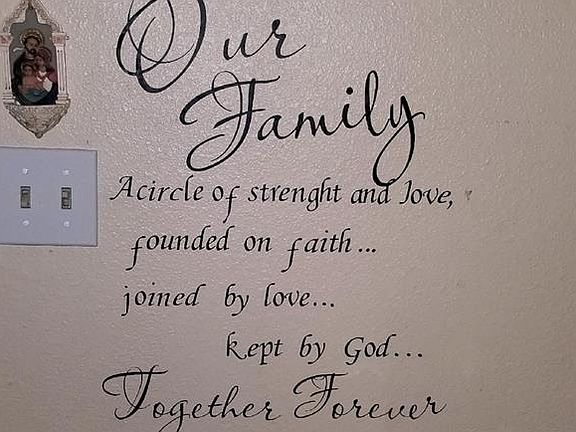 Our
Family
A circle of strenght and love,
founded on faith...
joined by love...
kept by God...
Together Forever